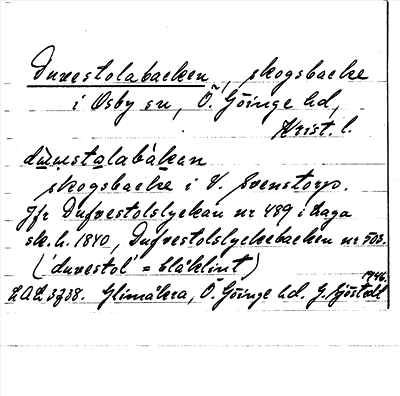 Duvestolabacken, skogsbacke
i Osby sn, Ö. Göinge hd,
Krist. l.
skogsbacke i V. Svenstorp.
Jfr Dufvestolslyckan nr 489 i Laga
sk. h. 1840, Dufvestolslyckebacken nr 503.
('duvestol' = blåklint)
1946.
LAL 3238. Glimåkra, Ö. Göinge hd. G. Sjöstedt